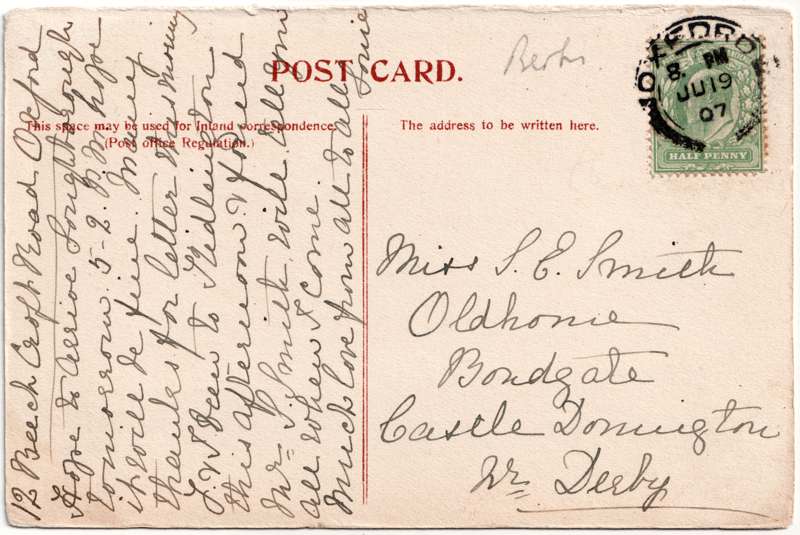 POST CARD.
Berks
OXFORD
8. PM
JU 19
07
HALF PENNY
This space may be used for Inland correspondence.
(Post office Regulation.)
The address to be written here.
12 Beech Croft Road Oxford
Hope to arrive Loughborough
tomorrow 5-2. P.M. hope
it will be fine. Many
thanks for letter this morning
I've been to Kidlington
this afternoon & found
Mrs Smith, will tell you
all when I come.
Much love from all to all
Miss S. E. Smith
Oldhome
Bondgate
Castle Donnington
Nr Derby